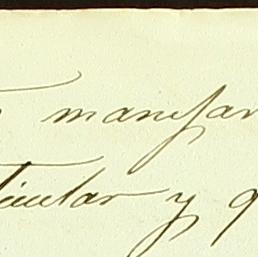 manifes
ticular y q